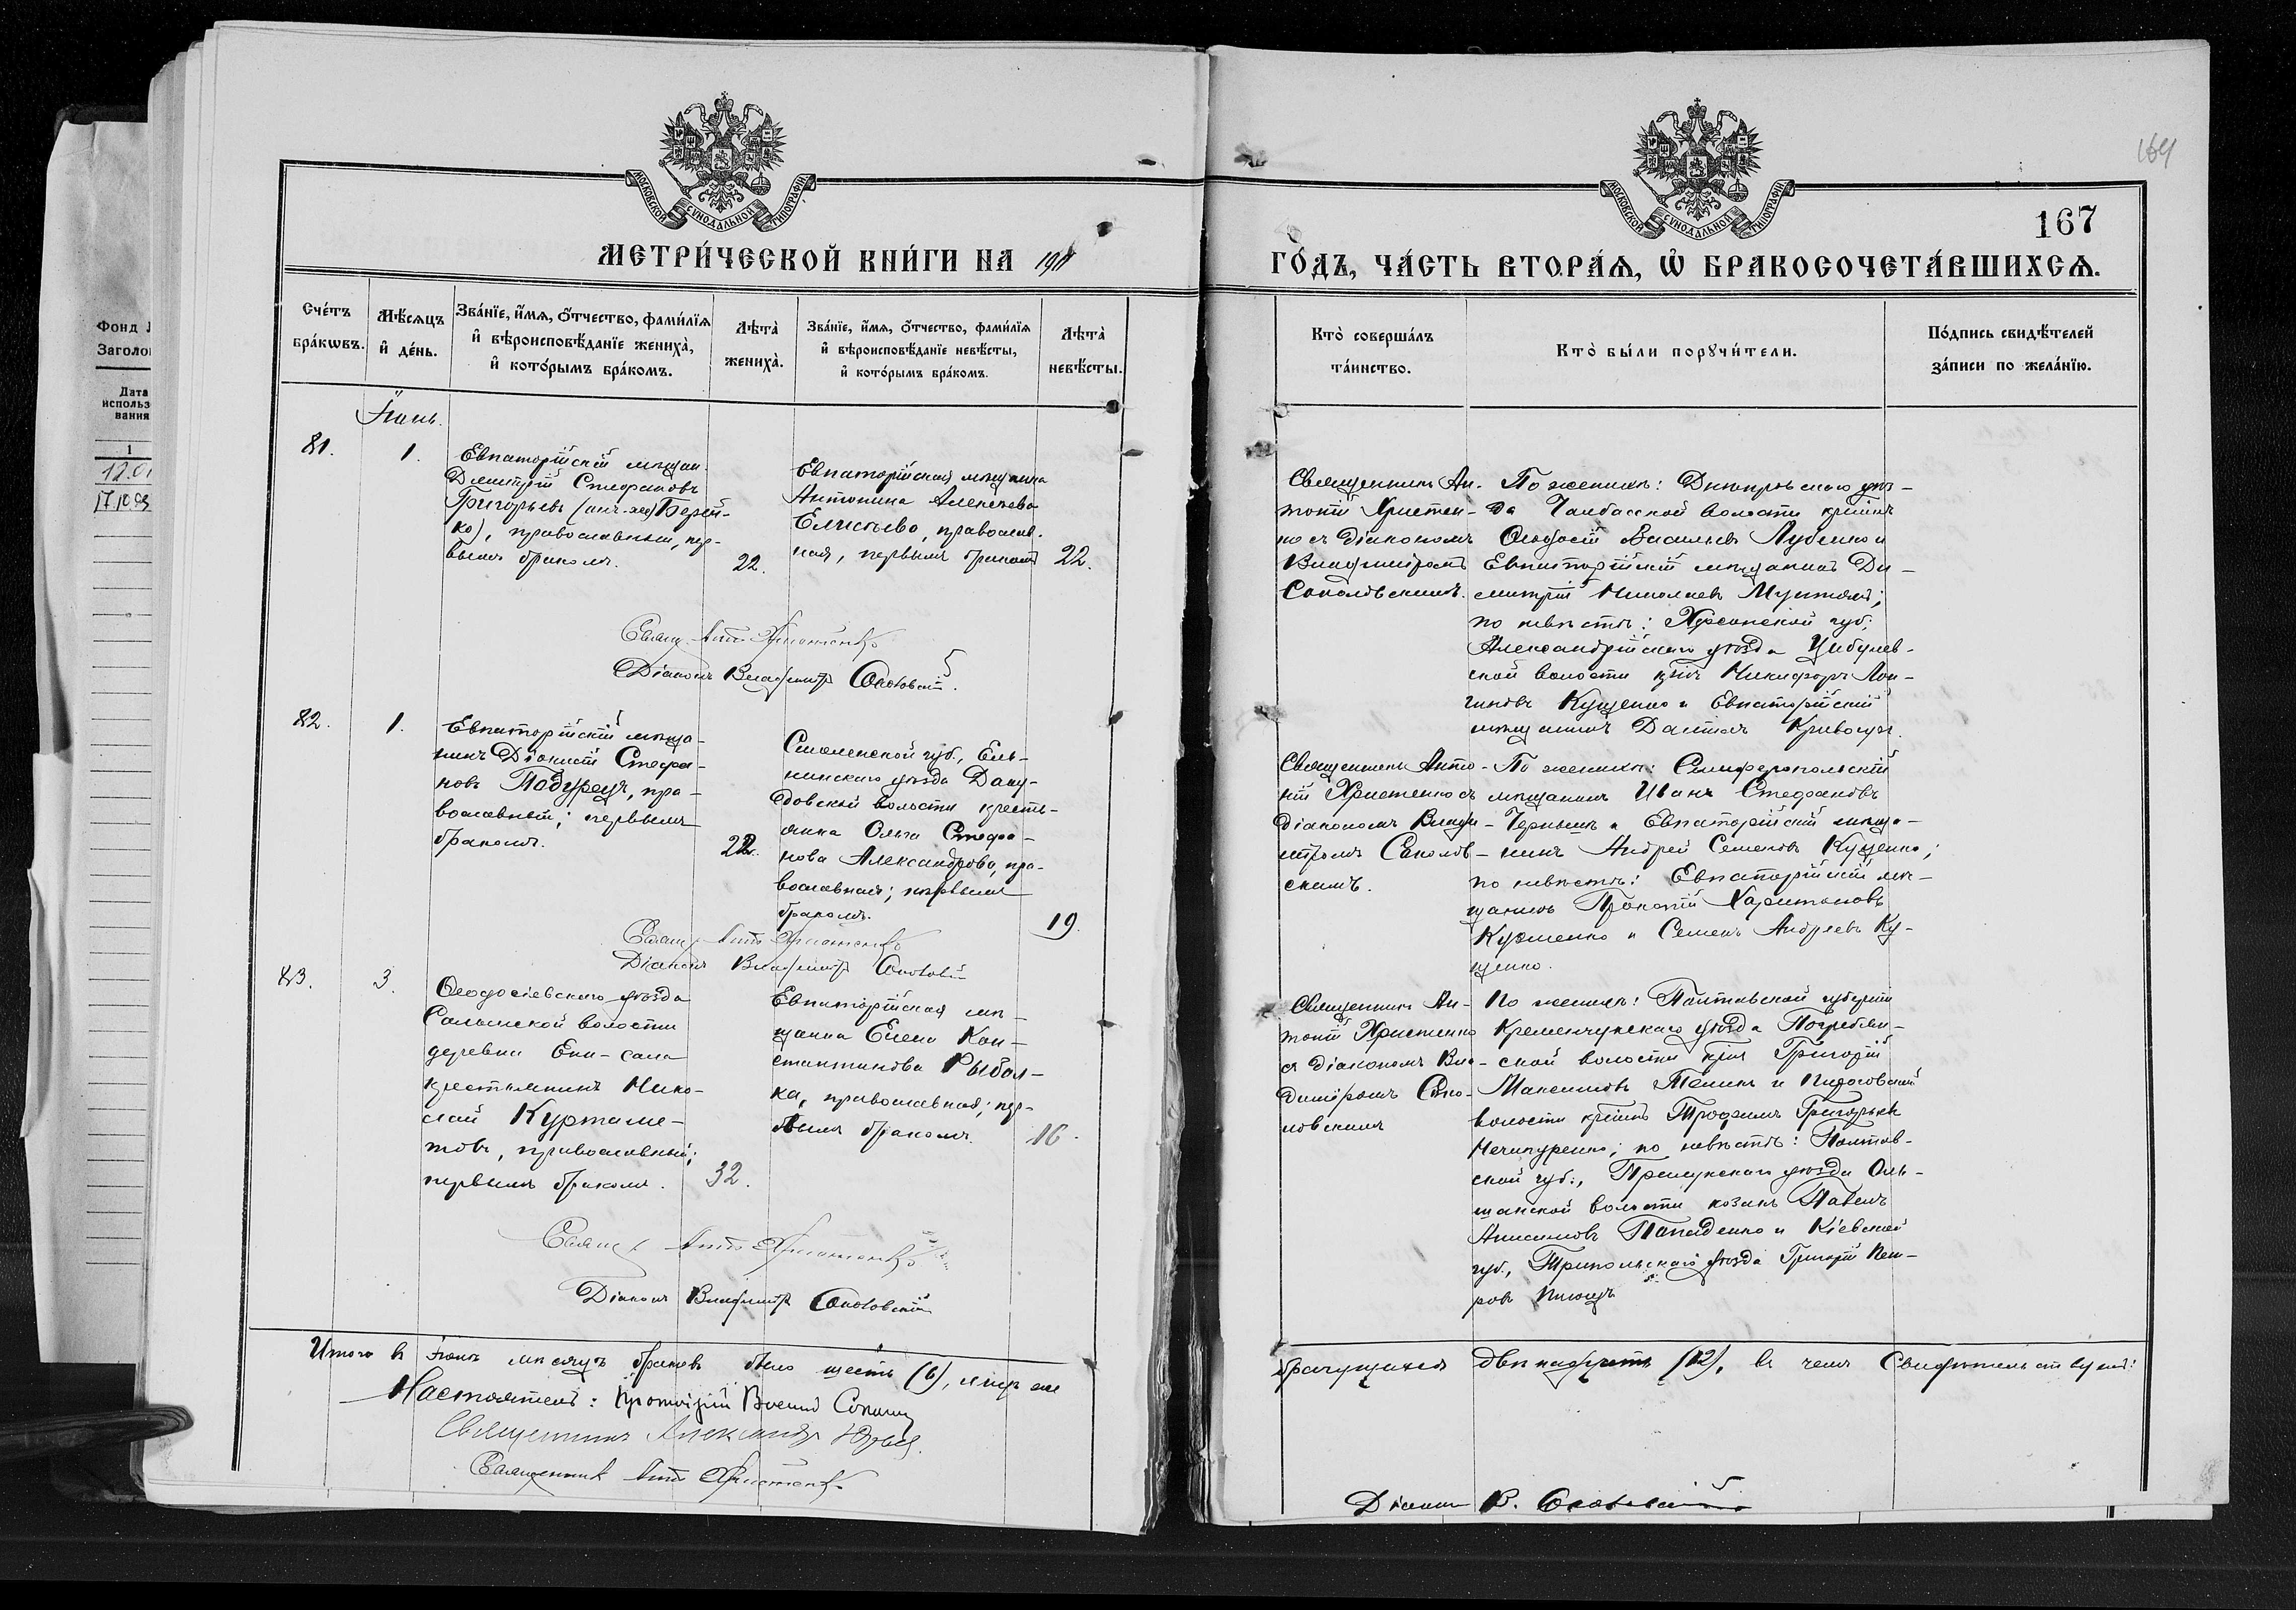 Фонд
Заголо
Дата
использ
вания
1
12.01
МОСКОВСКОЙ СѴНОДАЛЬНОЙ ТИПОГРАФІИ
МЕТРИ́ЧЕСКОЙ КНИ́ГИ НА 1911
Сче́тъ бра́кѡвъ.
Мѣ́сяцъ и҆ де́нь.
Зва́нїе, и҆́мя, ѻ҆́тчество, фами́лїя
и҆ вѣроисповѣ́данїе жениха̀,
и҆ кото́рымъ бра́комъ.
Лѣта̀ жениха̀.
Зва́нїе, и҆́мя, ѻ҆́тчество, фами́лїя
и҆ вѣроисповѣ́данїе невѣ́сты,
и҆ кото́рымъ бра́комъ.
Лѣта̀ невѣ́сты.
Іюнь.
81.
1.
Евпаторійскій мѣщан.
Димитрій Стефановъ
Григорьевъ Берей-
ко), православный, пер-
вымъ бракомъ.
22.
Евпаторійская мѣщанка
Антонина Алексѣева
Елисѣева, православ-
ная, первымъ бракомъ
22.
Свящ. Антон Христенко
Діаконъ Владиміръ Соколовскій.
82.
1.
Евпаторійскій мѣща-
нинъ Діонисій Стефа-
новъ Подурецъ, пра-
вославный; первымъ
бракомъ.
22.
Смоленской губ., Ель-
нинскаго уѣзда Даву-
довской волости кресть-
янка Ольга Стефа-
нова Александрова, пра-
вославная; первымъ
бракомъ.
19.
Свящ. Антон Христенко
Діаконъ Владиміръ Соколовскій
83.
3.
Ѳеодосіевскаго уѣзда
Салынской волости
деревни Ени-Сала
крестьянинъ Нико-
лай Куртаме-
товъ, православный;
первымъ бракомъ.
32.
Евпаторійская мѣ-
щанка Елена Кон-
стантинова Рыбал-
ка, православная; пер-
вымъ бракомъ.
16.
Свящ. Антон Христенко
Діаконъ Владиміръ Соколовскій
Итого въ Іюнѣ мѣсяцѣ браковъ было шесть (6), лицъ же
Настоятель: Протоіерей
Священникъ Александръ
Священникъ Антон Христенко
167
МОСКОВСКОЙ СѴНОДАЛЬНОЙ ТИПОГРАФІИ
ГО́ДЪ, ЧА́СТЬ ВТОРА́Я, Ѡ҆ БРАКОСОЧЕТА́ВШИХСЯ.
Кто̀ соверша́лъ
та́инство.
Кто̀ бы́ли порꙋчи́тели.
По́дпись свидѣ́телей
за́писи по жела́нїю.
Священникъ Ан-
тоній Христен-
ко съ діакономъ
Владиміромъ
Соколовскимъ.
По женихѣ: Днѣпровскаго уѣз-
да Чалбасской волости кр-инъ
Ѳеодосій Васильевъ Лубенко и
Евпаторійскій мѣщанинъ Ди-
митрій Николаевъ Мунтянъ;
по невѣстѣ: Херсонской губ.
Александрійскаго уѣзда Цибулев-
ской волости кр-нъ Никифоръ Лон-
гиновъ Куценко и Евпаторійскій
мѣщанинъ
Священникъ Анто-
ній Христенко съ
діакономъ Влади-
міромъ Соколов-
скимъ.
По женихѣ: Симферопольскій
мѣщанинъ Иванъ Стефановъ
Чернышъ и Евпаторійскій мѣща-
нинъ Андрей Семеновъ Куценко;
по невѣстѣ: Евпаторійскій мѣ-
щанинъ Прокопій Харитоновъ
Кузменко и Семенъ Андреевъ Ку-
ценко.
Священникъ Ан-
тоній Христенко
съ діакономъ Вла-
диміромъ Соко-
ловскимъ
По женихѣ: Полтавской губерніи
Кременчугскаго уѣзда Погребян-
ской волости кр-нъ Григорій
Максимовъ и
волости кр-нинъ Трофимъ Григорьевъ
Нечипуренко; по невѣстѣ: Полтав-
ской губ., Прилукскаго уѣзда Оль-
шанской волости козакъ Павелъ
Анисимовъ и Кіевской
губ., Трипольскаго уѣзда Григорій Пет-
ровъ
брачущихся двѣнадцать (12), въ чемъ свидѣтельствуютъ:
Діаконъ В. Соколовскій